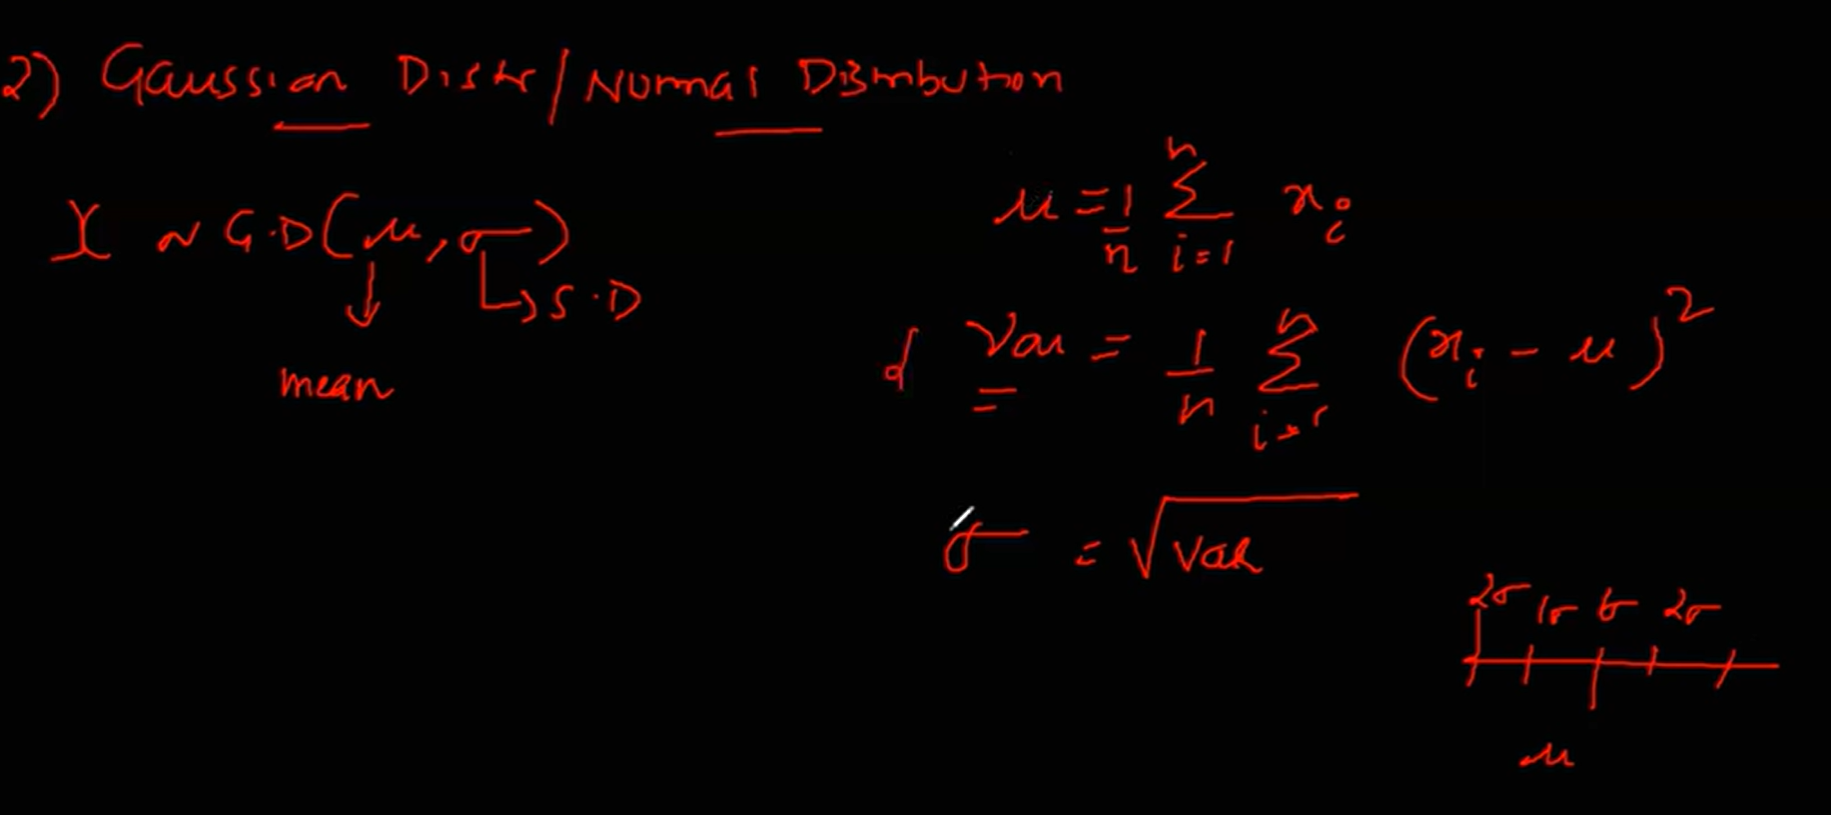 2) Gaussian Distr/Normal Distribution
X ~ G.D(μ, σ)
S.D
mean
μ = 1/n Σ i=1 n xi
Var = 1/n Σ i=1 n (xi - μ)²
σ = √Var
2σ 1σ σ 2σ
μ